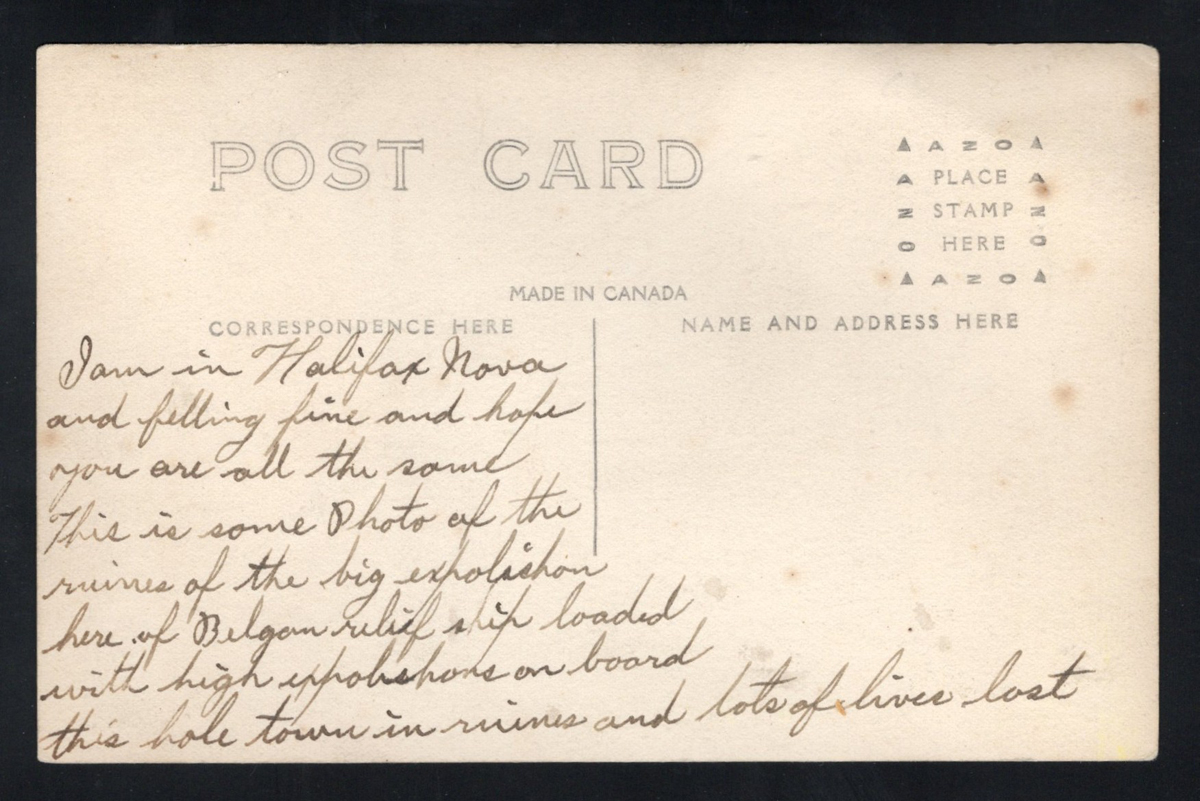 POST CARD
AZO
A PLACE A
N STAMP N
O HERE O
AZO
MADE IN CANADA
CORRESPONDENCE HERE
NAME AND ADDRESS HERE
I am in Halifax Nova
and felling fine and hope
you are all the same
This is some Photo of the
ruines of the big expolishon
here of Belgan relief ship loaded
with high xpolishons on board
this hole town in ruines and lots of lives lost